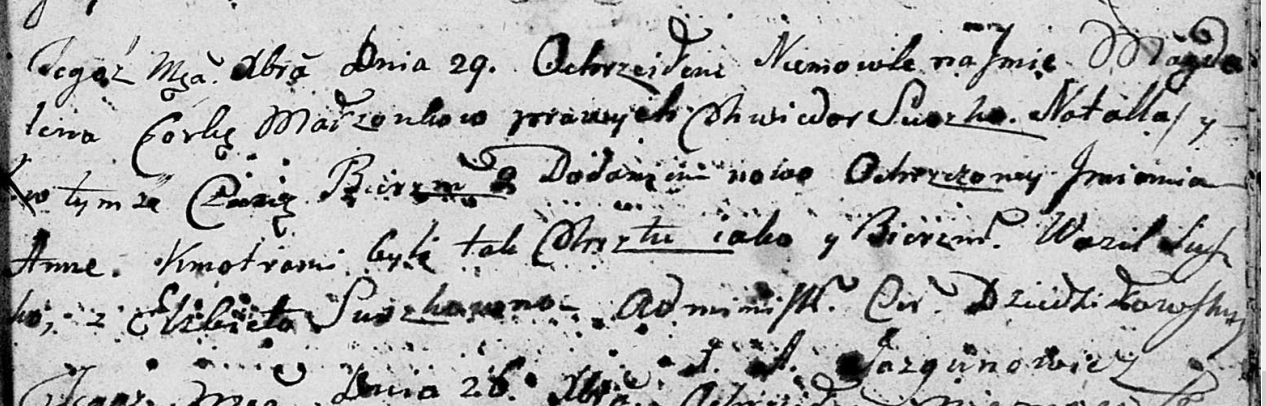 Tegoż Mca Xbra Dnia 29. Ochrzciłem Niemowlę na Jmie Magda
lena Corkę Małżonkow prawych Chwiedor Suszko. Natalla y
w tymże Czasie Bierzm Dodaniem nowo Ochrzczoney Jmienia
Anne. Kmotrami byłi tak Chrztu iako y Bierzm. Wasil Susz
ko, z Elzbieta Suszkowno Administ. Cer. Dziedziłowsky
Jazgunowicz
Tegoż Mca Dnia 26. Xbra Ochrzciłem